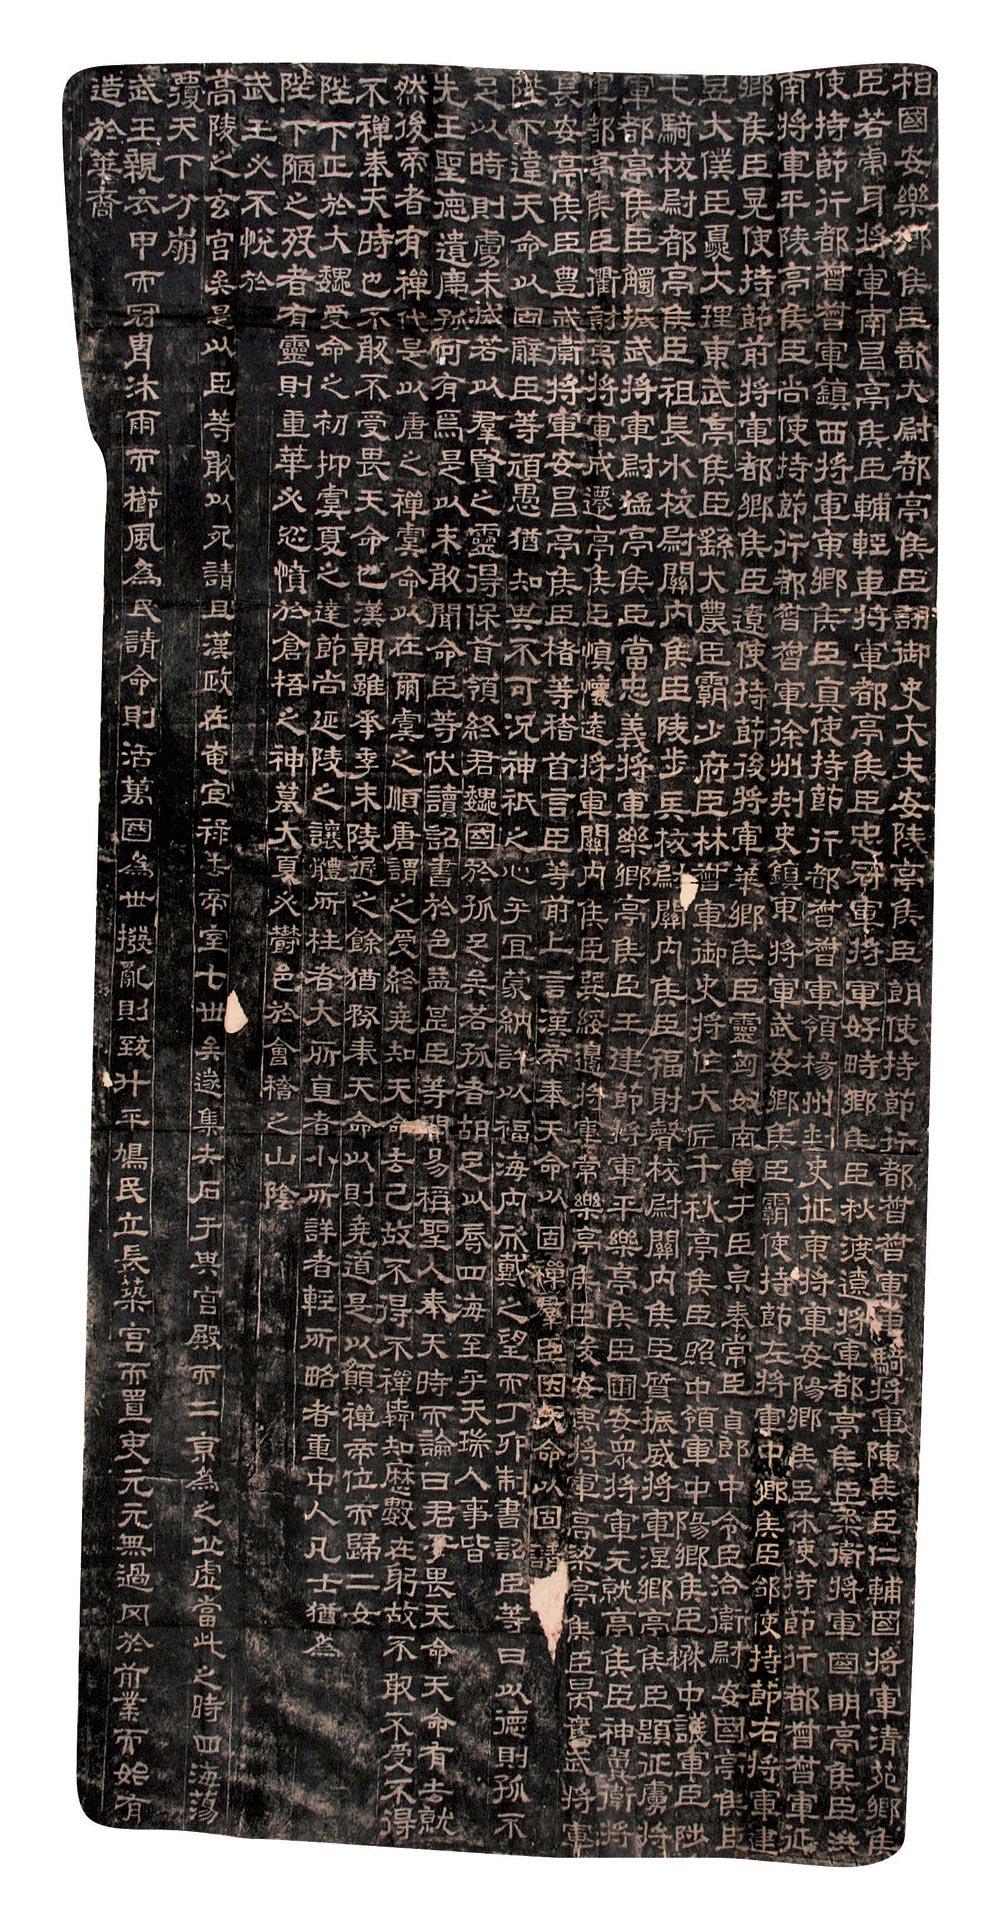 相國安樂鄉侯臣歆大尉都亭侯臣詡御史大夫安陵亭侯臣朗使持節行都督督軍車騎將軍陳侯臣仁輔國將軍清苑鄉侯
臣若虎牙將軍南昌亭侯臣輔輕車將軍都亭侯臣忠冠軍將軍好畤鄉侯臣秋渡遼將軍都亭侯臣柔衛將軍國明亭侯臣洪
使持節行都督督軍鎮西將軍東鄉侯臣真使持節行都督督軍領楊州刺史征東將軍安陽鄉侯臣休使持節行都督督軍征
南將軍平陵亭侯臣尚使持節行都督督軍徐州刺史鎮東將軍武安鄉侯臣霸使持節左將軍中鄉侯臣郃使持節右將軍建
鄉侯臣晃使持節前將軍都鄉侯臣遼使持節後將軍華鄉侯臣靈匈奴南單于臣泉奉常臣貞郎中令臣洽衛尉安國亭侯臣
昱大僕臣夔大理東武亭侯臣繇大農臣霸少府臣林督軍御史將作大匠千秋亭侯臣照中領軍中陽鄉侯臣楙中護軍臣陟
屯騎校尉都亭侯臣祖長水校尉關內侯臣陵步兵校尉關內侯臣福射聲校尉關內侯臣質振威將軍涅鄉亭侯臣題征虜將
軍都亭侯臣觸振武將軍尉猛亭侯臣當忠義將軍樂鄉亭侯臣生建節將軍平樂亭侯臣圃安眾將軍元就亭侯臣神翼衛將
軍都亭侯臣衢討夷將軍成遷亭侯臣慎懷遠將軍關內侯臣巽綏邊將軍常樂亭侯臣俊安夷將軍高梁亭侯臣昺奮武將軍
長安亭侯臣豐武衛將軍安昌亭侯臣楮等稽首言臣等前上言漢帝奉天命以固禪羣臣因天命以固請
陛下違天命以固辭臣等頑愚猶知其不可況神祇之心乎宜蒙納許以福海內欣戴之望而丁卯制書詔臣等曰以德則孤不
足以時則虜未滅若以羣賢之靈得保首領終君魏國於孤足矣若孤者胡足以辱四海至乎天瑞人事皆
先王聖德遺慶孤何有焉是以未敢聞命臣等伏讀詔書於邑益甚臣等聞易稱聖人奉天時而論曰君子畏天命天命有去就
然後帝者有禪代是以唐之禪虞命以在爾虞之順唐謂之受終堯知天命去己故不得不禪舜知曆數在躬故不敢不受不得
不禪奉天時也不敢不受畏天命也漢朝雖承季末陵遲之餘猶務奉天命以則堯道是以願禪帝位而歸二女
陛下正於大魏受命之初抑虞夏之達節尚延陵之讓體所枉者大所直者小所詳者輕所略者重中人凡士猶為
陛下陋之歿者有靈則重華必忿憤於倉梧之神墓大夏必鬱邑於會稽之山陰
武王必不悅於
高陵之玄宮矣是以臣等敢以死請且漢政在奄宦祿去帝室七世矣遂集矢石于其宮殿而二京為之丘虛當此之時四海蕩
覆天下分崩
武王親衣甲而冠冑沐雨而櫛風為民請命則活萬國為世撥亂則致升平鳩民立長築宮而置吏元元無過罔於前業而始有
造於華裔